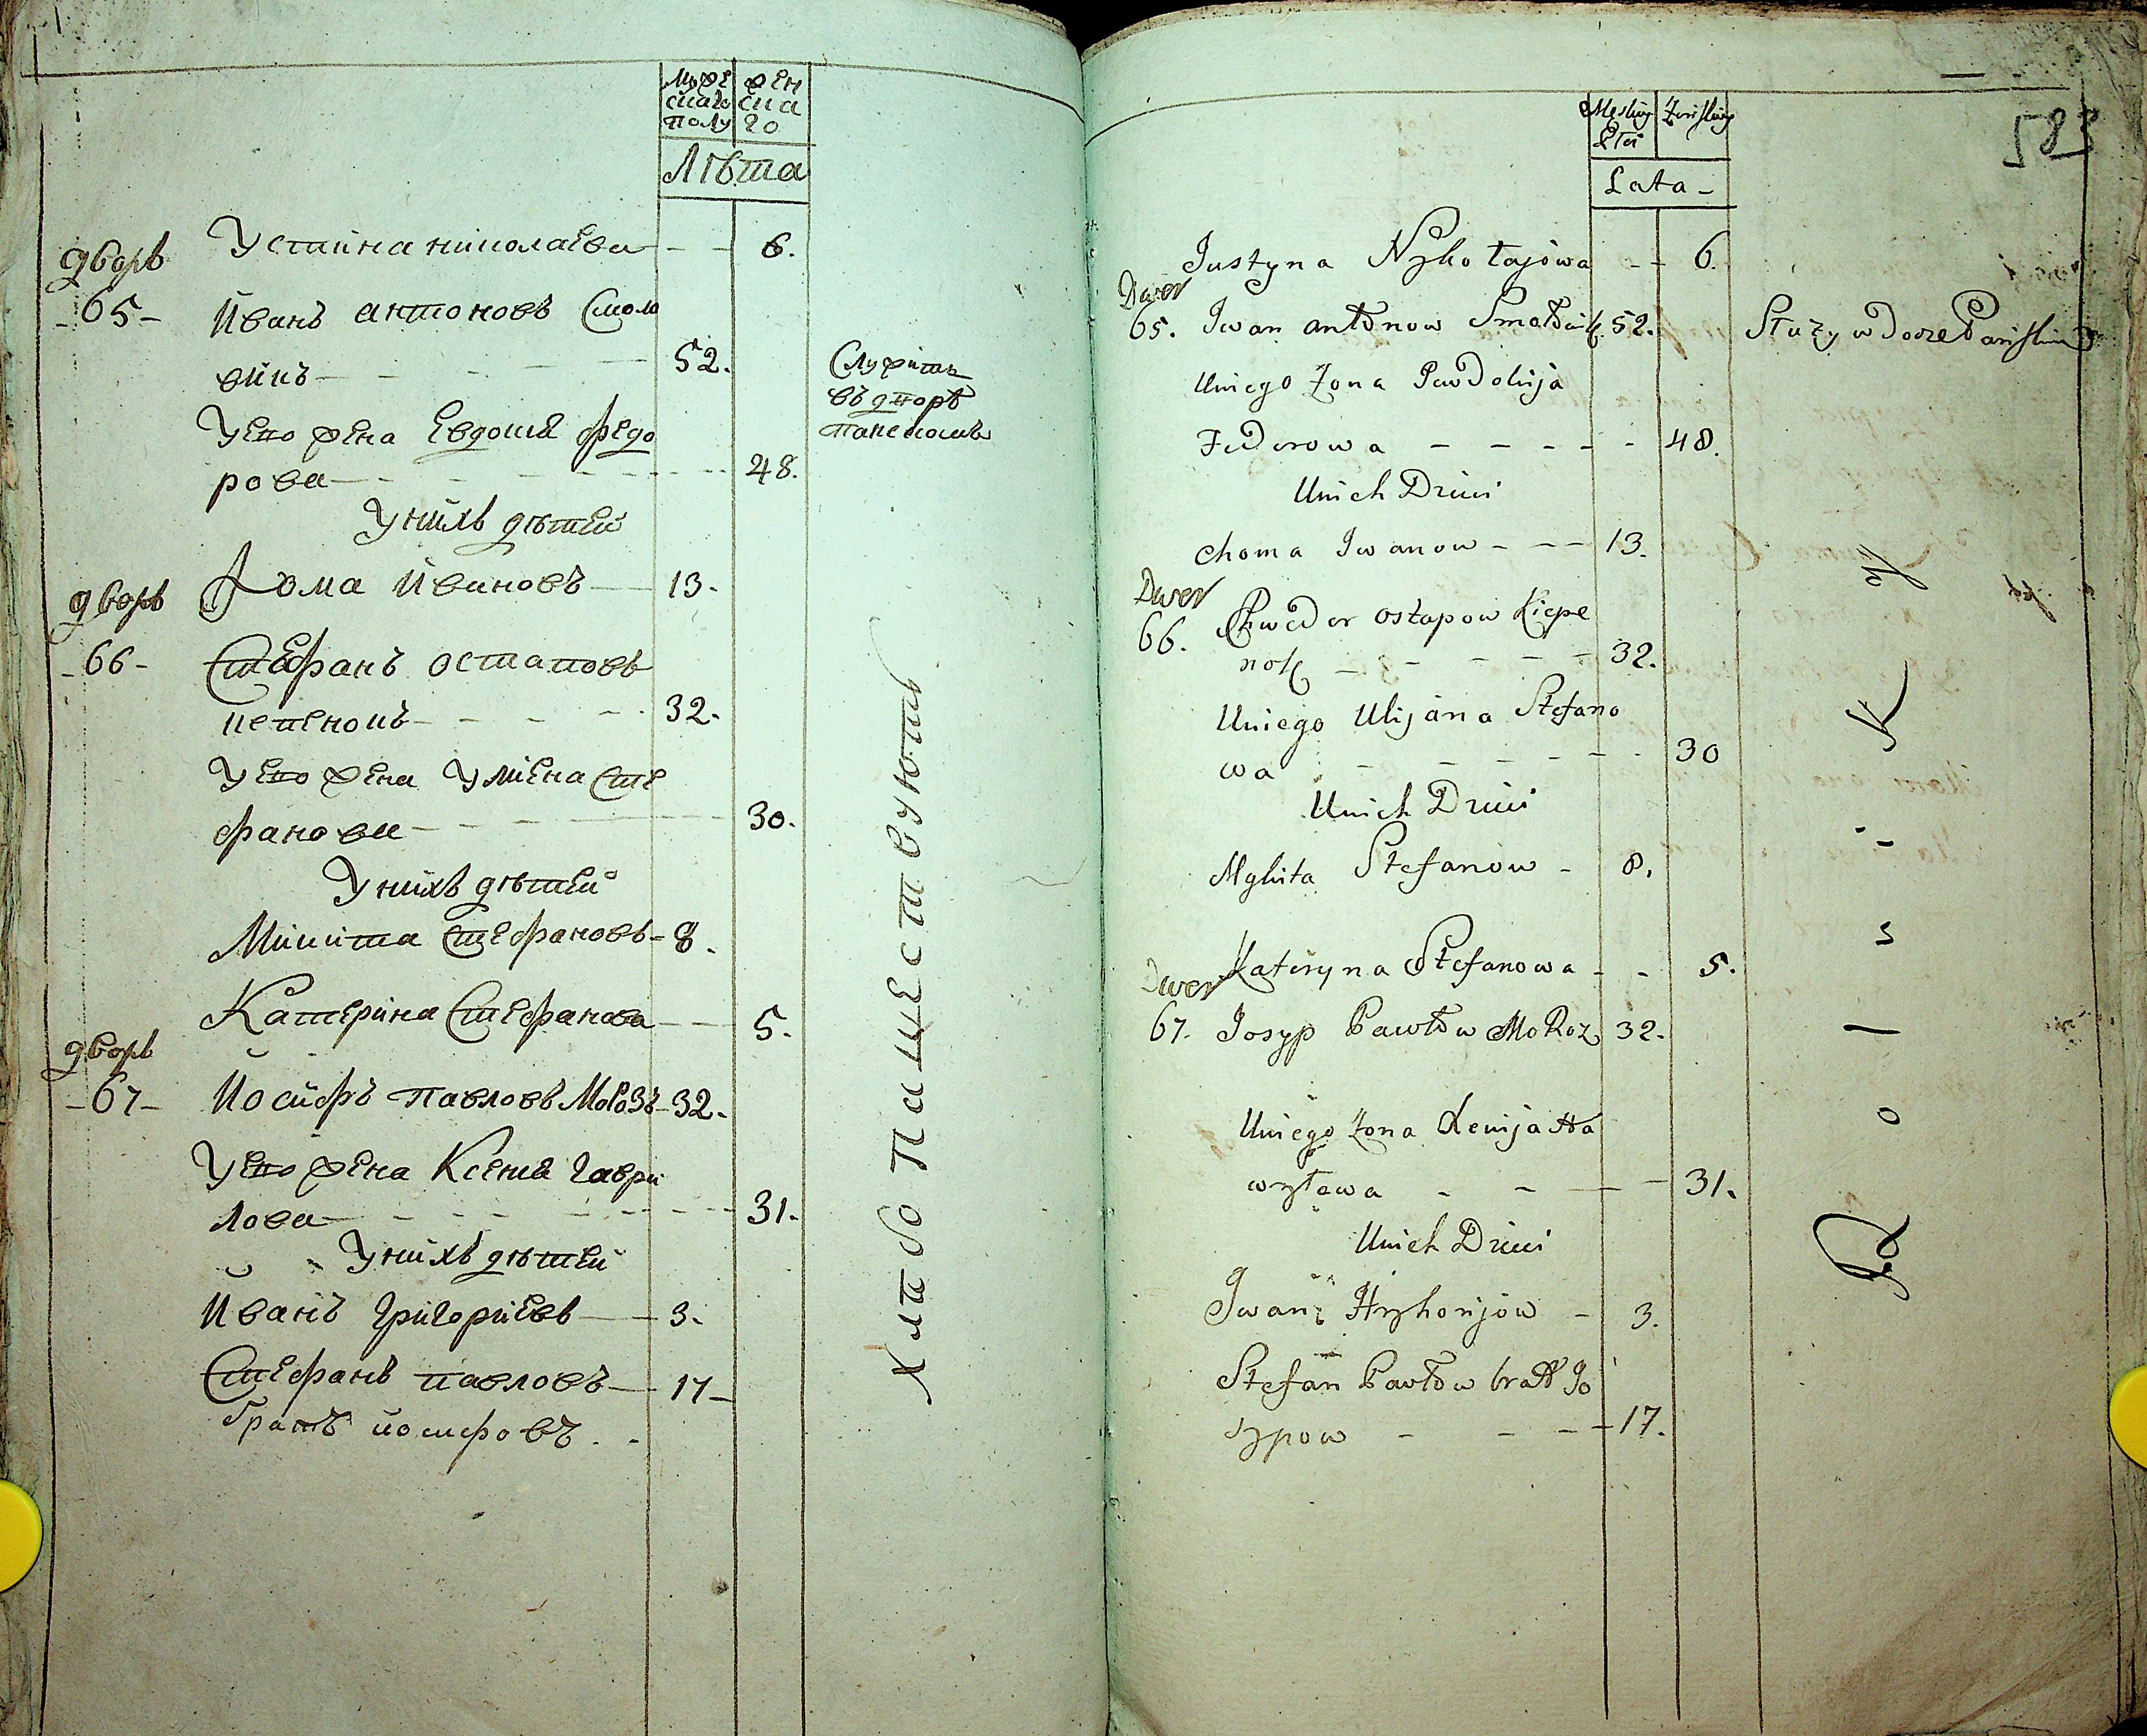 Муже
скаго
полу
жен
ска
го
Лѣта
Устина николаева - - 6.
дворъ
-65- Иванъ антоновъ Смоло
викъ - - - 52.
Служитъ
въ дворѣ
панскомъ
Уего жена Евдокія федо
рова - - - 48.
Унихъ дѣтей
Хома Ивановъ - 13.
дворъ
-66- Стефанъ остаповъ
кепенокъ - - - 32.
Уего жена Уліена Сте
фанова - - - 30.
Унихъ дѣтей
Микита Стефановъ - 8.
Катерина Стефанова - 5.
дворъ
-67- Иосифъ Павловъ Морозъ - 32.
Уего жена Ксенія гаври
лова - - - 31.
Унихъ дѣтей
Иванъ Григоріевъ - 3.
Стефанъ павловъ - 17 -
братъ иосифовъ - -
Хлѣбопашествуютъ
583
Męskiey
Płci
Żeńskiey
Lata -
Justyna Nykołajowa - - 6.
Dwor
65. Iwan antonow Smołowik 52. Służy w dworze Pańskim
Uniego Żona Jewdokija
Fedorowa - - - - - 48.
Unich Dzieci
Choma Iwanow - - - 13.
Dwor
66. Chwedor ostapow Kiepe
nok - - - - - 32.
Uniego Ulijana Stefano
wa - - - - - 30
Unich Dzieci
Mykita Stefanow - 8.
Kateryna Stefanowa - - 5.
Dwor
67. Josyp Pawłow MoRoz 32.
Uniego Żona Xenija Ha
wryłowa - - - - 31.
Unich Dzieci
Iwan Hryhorijow - 3.
Stefan Pawłow bratt Jo
sypow - - - - 17.
Rolski